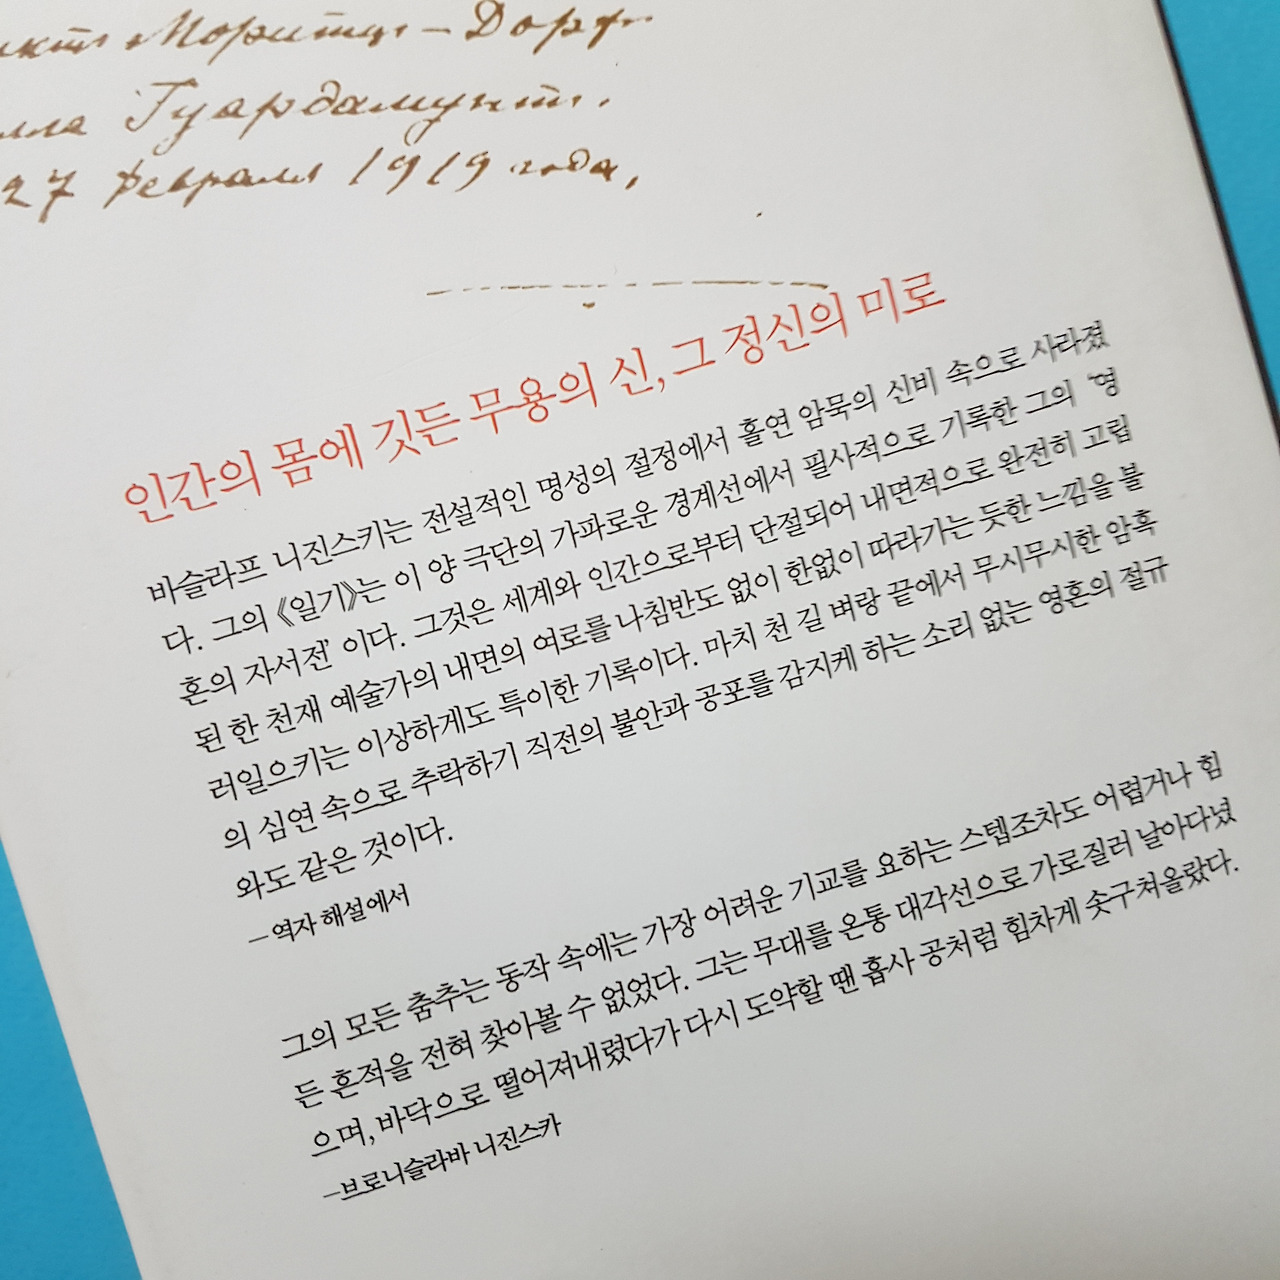 Мориц-Дорф
Гуардамунт.
27 февраля 1919 года,
인간의 몸에 깃든 무용의 신, 그 정신의 미로
바슬라프 니진스키는 전설적인 명성의 절정에서 홀연 암묵의 신비 속으로 사라졌
다. 그의 《일기》는 이 양 극단의 가파로운 경계선에서 필사적으로 기록한 그의 '영
혼의 자서전' 이다. 그것은 세계와 인간으로부터 단절되어 내면적으로 완전히 고립
된 한 천재 예술가의 내면의 여로를 나침반도 없이 한없이 따라가는 듯한 느낌을 불
러일으키는 이상하게도 특이한 기록이다. 마치 천 길 벼랑 끝에서 무시무시한 암흑
의 심연 속으로 추락하기 직전의 불안과 공포를 감지케 하는 소리 없는 영혼의 절규
와도 같은 것이다.
– 역자 해설에서
그의 모든 춤추는 동작 속에는 가장 어려운 기교를 요하는 스텝조차도 어렵거나 힘
든 흔적을 전혀 찾아볼 수 없었다. 그는 무대를 온통 대각선으로 가로질러 날아다녔
으며, 바닥으로 떨어져내렸다가 다시 도약할 땐 흡사 공처럼 힘차게 솟구쳐올랐다.
–브로니슬라바 니진스카